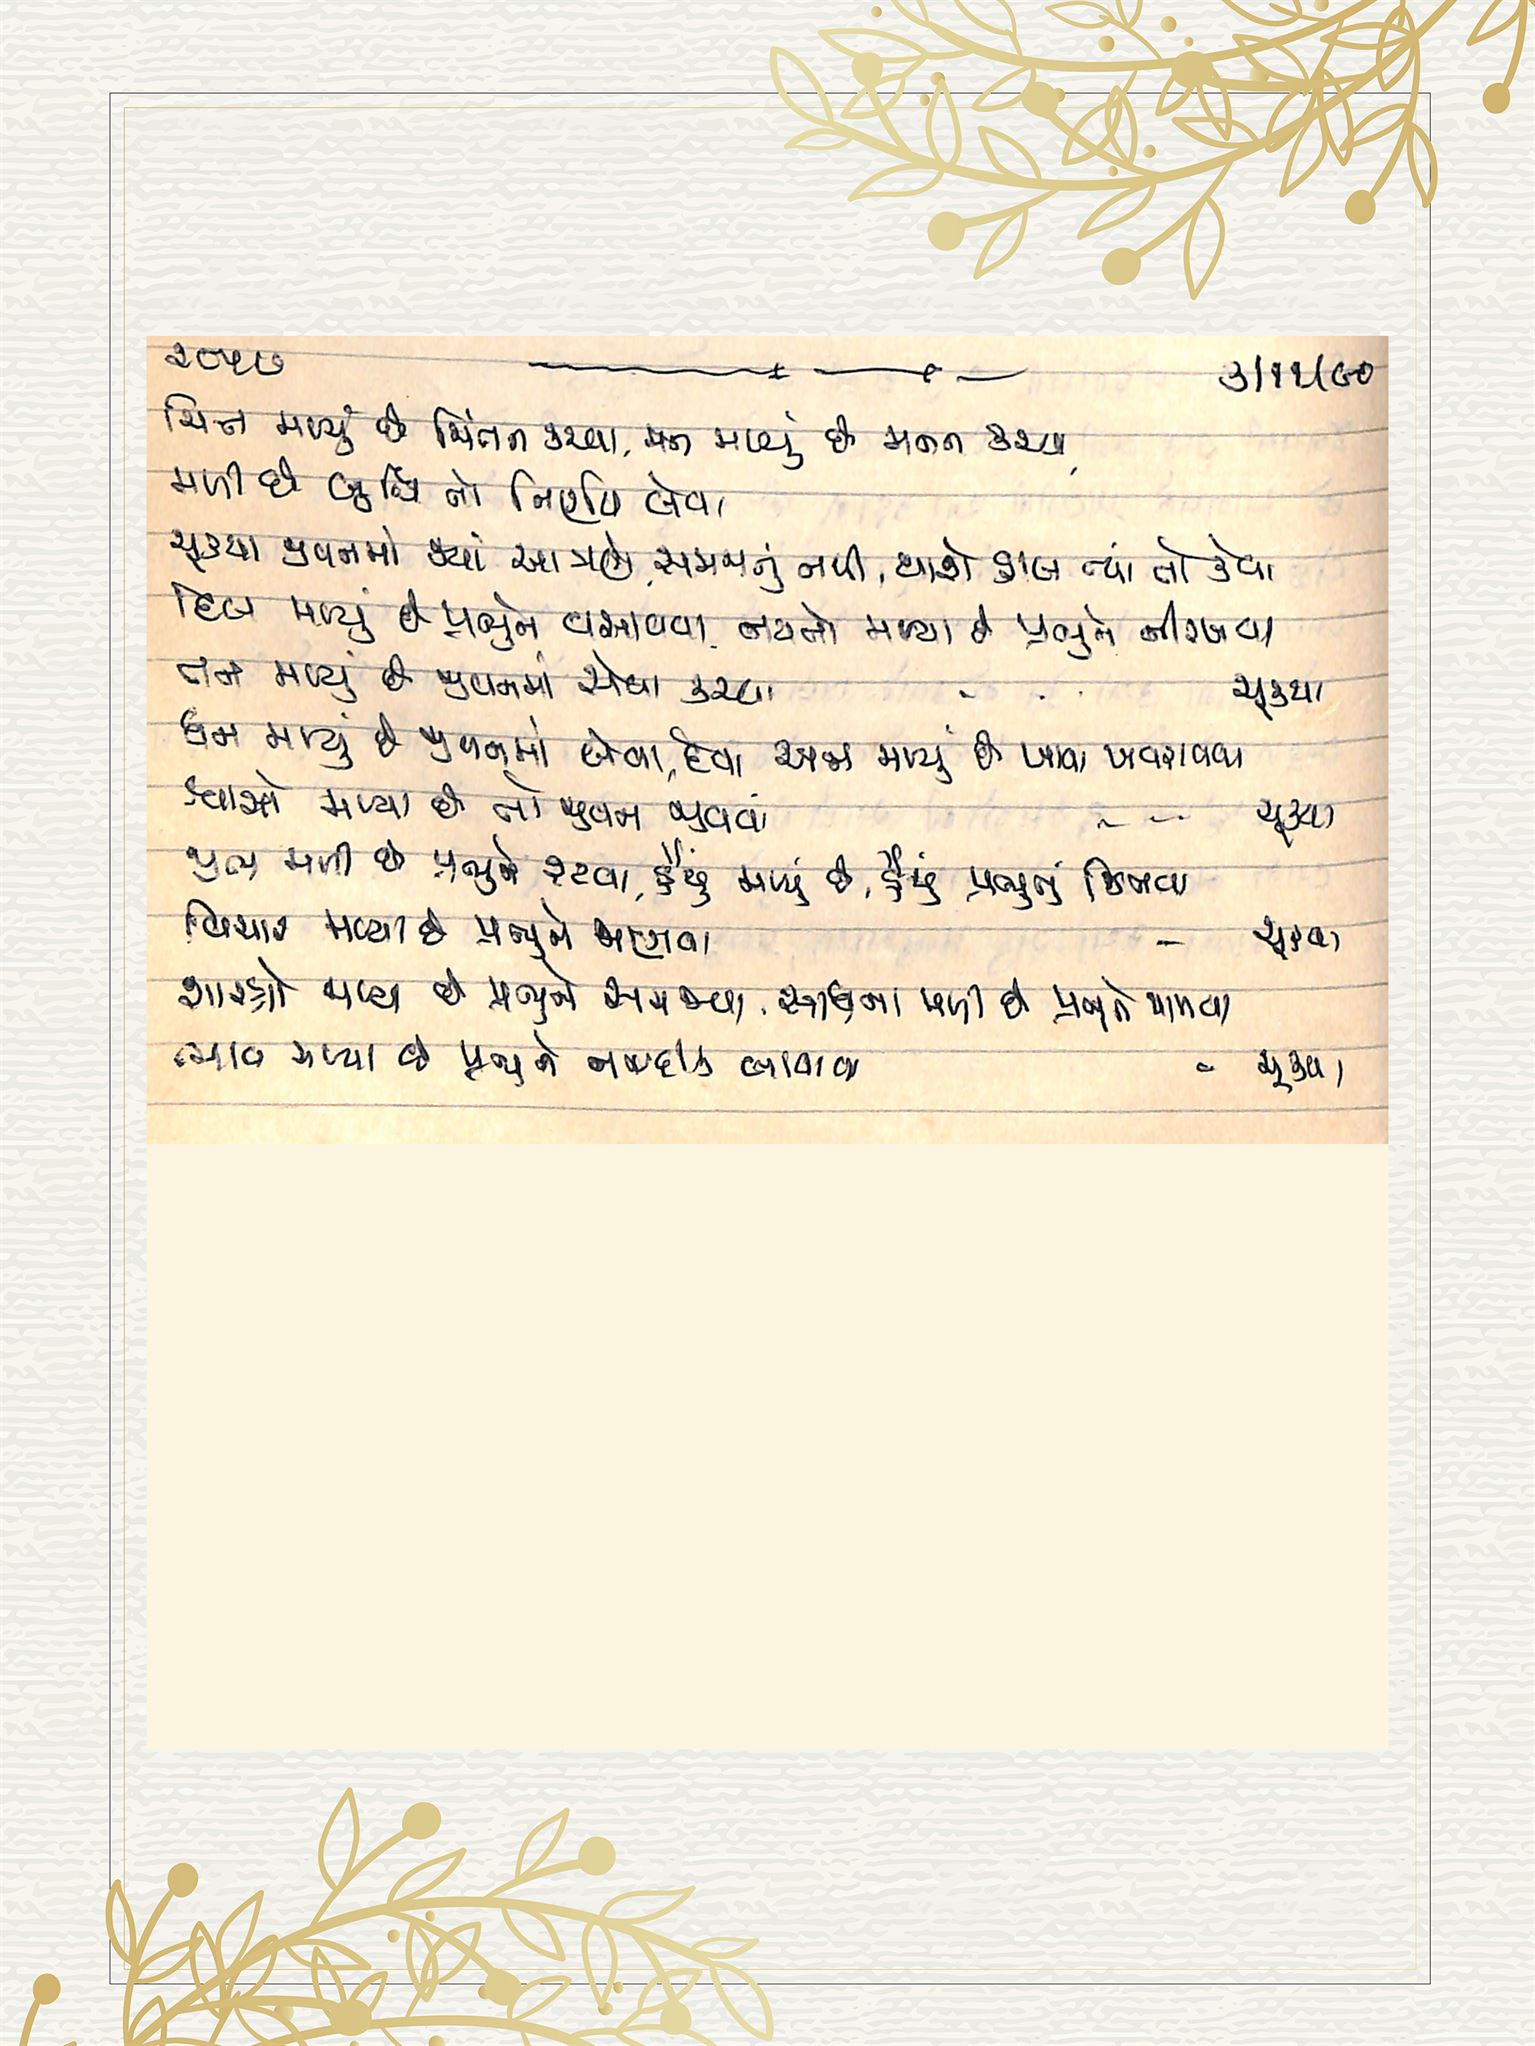 ૨૦૫૭ ૩/૧૧/૯૦
ચિત્ત મળ્યું છે ચિંતન કરવા, મન મળ્યું છે મનન કરવા,
મળી છે બુદ્ધિ તો નિર્ણય લેવા
ચૂક્યા જીવનમાં જ્યાં આ ત્રણે, સમજાતું નથી, થાશે હાલ ત્યાં તો કેવા
દિલ મળ્યું છે પ્રભુને વસાવવા, નયનો મળ્યા છે પ્રભુને નીરખવા
તન મળ્યું છે જીવનમાં સેવા કરવા ચૂક્યા
ધન મળ્યું છે જીવનમાં લેવા, દેવા અન્ન મળ્યું છે ખાવા ખવરાવવા
શ્વાસો મળ્યા છે તો જીવન જીવવા ચૂક્યા
જીભ મળી છે પ્રભુને રટવા, હૈયું મળ્યું છે, હૈયું પ્રભુનું જિતવા
વિચાર મળ્યા છે પ્રભુને જાણવા ચૂક્યા
શાસ્ત્રો મળ્યા છે પ્રભુને સમજવા, સાધના મળી છે પ્રભુને પામવા
ભાવ મળ્યા છે પ્રભુને નજદીક લાવવા ચૂક્યા